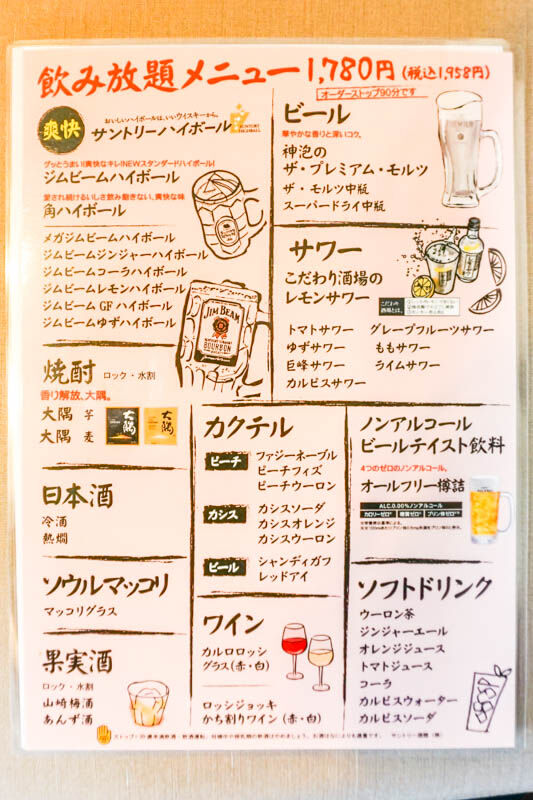 飲み放題メニュー1,780円(税込1,958円)
オーダーストップ90分です
爽快
おいしいハイボールは、いいウイスキーから。
サントリーハイボール
グッとうまい!爽快なキレ!NEWスタンダードハイボール!
ジムビームハイボール
愛され続けるいしさ飲み飽きない、爽快な味
角ハイボール
メガジムビームハイボール
ジムビームジンジャーハイボール
ジムビームコーラハイボール
ジムビームレモンハイボール
ジムビーム GF ハイボール
ジムビームゆずハイボール
JIM BEAM
BOURBON
ビール
華やかな香りと深いコク。
神泡の
ザ・プレミアム・モルツ
ザ・モルツ中瓶
スーパードライ中瓶
サワー
こだわり酒場の
レモンサワー
トマトサワー グレープフルーツサワー
ゆずサワー ももサワー
巨峰サワー ライムサワー
カルピスサワー
焼酎 ロック・水割
香り解放、大隅。
大隅 芋
大隅 麦
大隅
大隅
日本酒
冷酒
熱燗
ソウルマッコリ
マッコリグラス
果実酒
ロック・水割
山崎梅酒
あんず酒
カクテル
ピーチ
ファジーネーブル
ピーチフィズ
ピーチウーロン
カシス
カシスソーダ
カシスオレンジ
カシスウーロン
ビール
シャンディガフ
レッドアイ
ワイン
カルロロッシ
グラス(赤・白)
ロッシジョッキ
かち割りワイン (赤・白)
ノンアルコール
ビールテイスト飲料
4つのゼロのノンアルコール。
オールフリー樽詰
ALC.0.00%ノンアルコール
カロリーゼロ 糖質ゼロ プリン体ゼロ
ソフトドリンク
ウーロン茶
ジンジャーエール
オレンジジュース
トマトジュース
コーラ
カルピスウォーター
カルピスソーダ